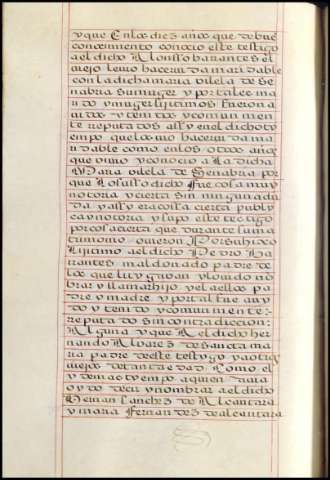 y que En los diez años que de buē
conoscimiento conocio este testigo
a el dicho Alonsso barantes El
viejo leuio hacer vida maridable
con la dicha maria vilela de Se
nabria su muger y por tales ma
rido y muger ligitimos fueron a
uidos y tenidos y comunmente
reputados assi y en el dicho ty
empo que los uio hacer vida ma
ridable como en los otros años
que vimo y conocio a La dicha
Maria vilela de Senabria por
que Lo susso dicho fue cosa muy
notoria y cierta sin ninguna du
da y assi era cossa cierta publi
ca y notoria y supo este testigo
por cosa cierta que durante su ma
trimonio ouieron Por su hixo
Lijitimo a el dicho Pedro Ba
rrantes maldonado padre de
los que litygan y lo uido no
brar y llamar hijo y el a ellos pa
dre y madre y por tal fue auy
do y tenido y comunmente
reputado sin contradiccion
Alguna y que A el dicho her
nando Alvarez de Sancta ma
ria padre de este testygo y a otros
viejos de tanta edad Como el
y de mas tyempo a quien auia
oydo decir y nombrar a el dicho
Hernan Sanchez de Alcantara
y maria Fernandez de alcantara